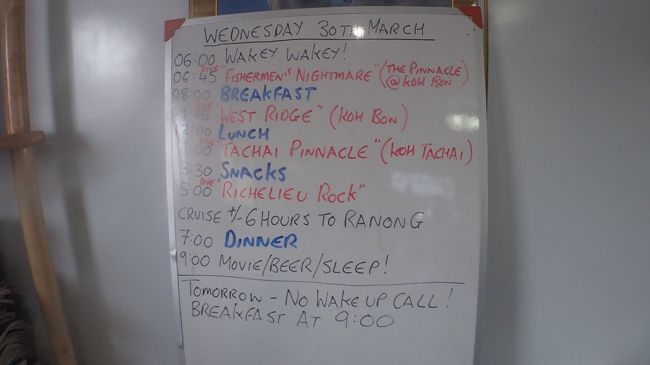 WEDNESDAY 30TH MARCH
06:00 WAKEY WAKEY!
06:45 DIVE "FISHERMEN'S NIGHTMARE" (THE PINNACLE
@ KOH BON)
08:00 BREAKFAST
DIVE "WEST RIDGE" (KOH BON)
LUNCH
DIVE "TACHAI PINNACLE" (KOH TACHAI)
3:30 SNACKS
5:00 DIVE "RICHELIEU ROCK"
CRUISE +/- 6 HOURS TO RANONG
7:00 DINNER
9:00 MOVIE/BEER/SLEEP!
TOMORROW - NO WAKE UP CALL!
BREAKFAST AT 9:00